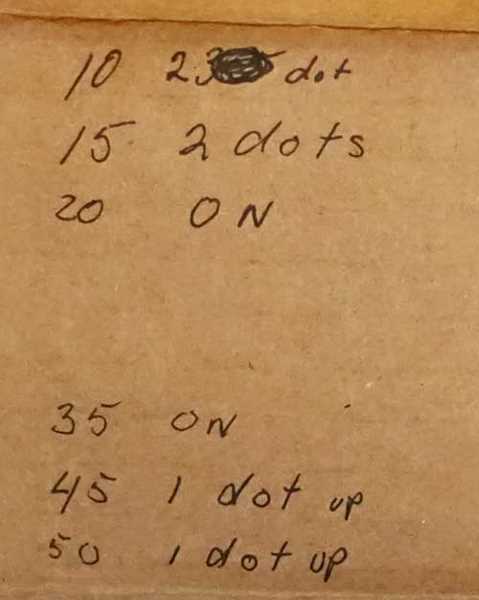 10 23 dot
15 2 dots
20 ON
35 ON
45 1 dot up
50 1 dot up